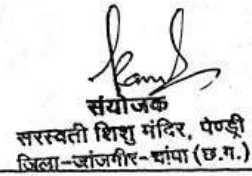 संयोजक
सरस्वती शिशु मंदिर, पेण्ड्री
जिला-जांजगीर-चांपा (छ.ग.)